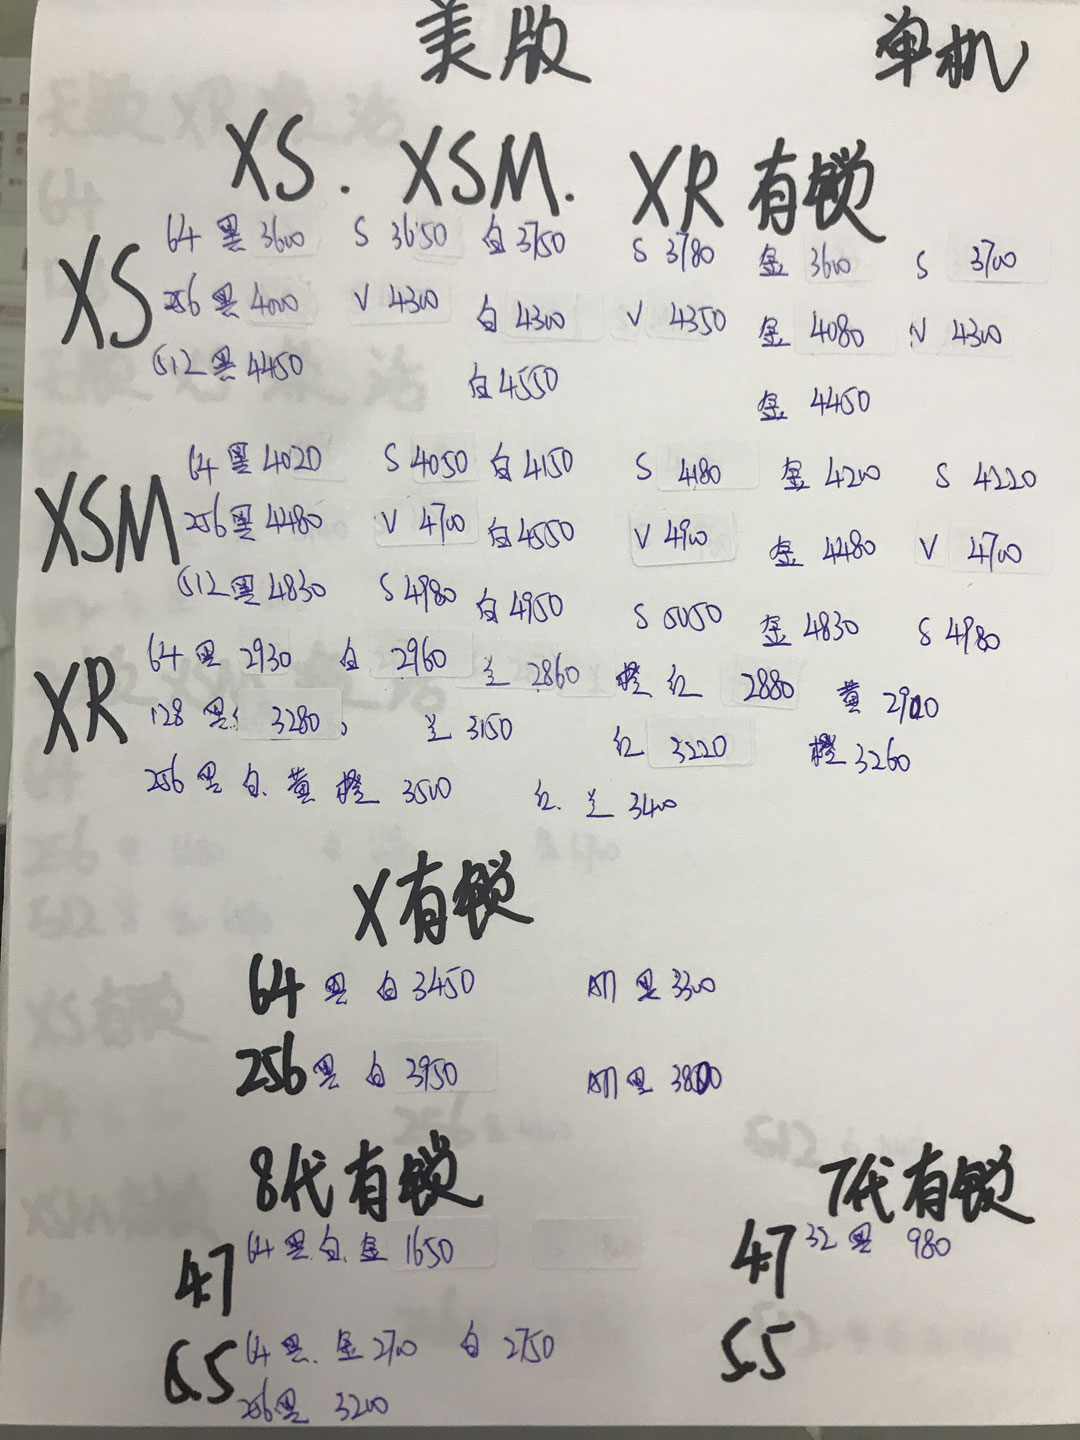 美版 单机
XS. XSM. XR有锁
XS
64 黑 3600 S 3650 白 3750 S 3780 金 3600 S 3700
256 黑 4000 V 4300 白 4300 V 4350 金 4080 V 4300
512 黑 4450 白 4550 金 4450
XSM
64 黑 4020 S 4050 白 4150 S 4180 金 4200 S 4220
256 黑 4480 V 4700 白 4550 V 4900 金 4480 V 4700
512 黑 4830 S 4980 白 4950 S 5050 金 4830 S 4980
XR
64 黑 2930 白 2960 兰 2860 橙 红 2880 黄 2900
128 黑 3280 兰 3150 红 3220 橙 3260
256 黑 白. 黄 橙 3500 红. 兰 3400
X有锁
64 黑 白 3450 AT 黑 3300
256 黑 白 3950 AT 黑 3800
8代有锁 7代有锁
4.7 64 黑. 白. 金 1650
4.7 32 黑 980
5.5 64 黑. 金 2700 白 2750
256 黑 3200
5.5